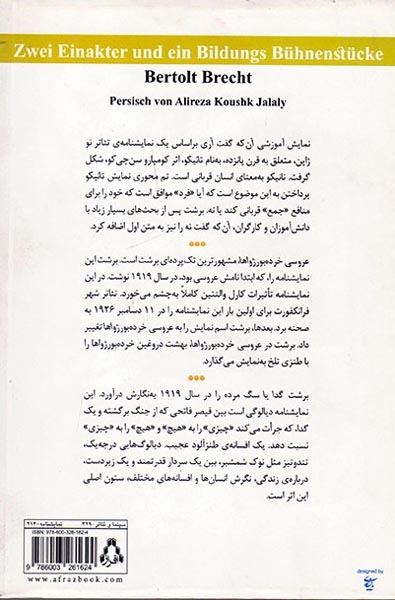 Zwei Einakter und ein Bildungs Bühnenstücke
Bertolt Brecht
Persisch von Alireza Koushk Jalaly
نمایش آموزشی آن‌که گفت آری براساس یک نمایشنامه‌ی تئاتر نو
ژاپن، متعلق به قرن پانزده، به‌نام تانیکو، اثر کومپارو سن‌چی‌کو، شکل
گرفت. تانیکو به‌معنای انسان قربانی است. تم محوری نمایش تانیکو
پرداختن به این موضوع است که آیا «فرد» موافق است که خود را برای
منافع «جمع» قربانی کند یا نه. برشت پس از بحث‌های بسیار زیاد با
دانش‌آموزان و کارگران، آن‌که گفت نه را نیز به متن اول اضافه کرد.
***
عروسی خرده‌بورژواها، مشهورترین تک‌پرده‌ای برشت است. برشت این
نمایشنامه را، که ابتدا نامش عروسی بود، در سال ۱۹۱۹ نوشت. در این
نمایشنامه تأثیرات کارل والنتین کاملاً به‌چشم می‌خورد. تئاتر شهر
فرانکفورت برای اولین بار این نمایشنامه را در ۱۱ دسامبر ۱۹۲۶ به
صحنه برد. بعدها، برشت اسم نمایش را به عروسی خرده‌بورژواها تغییر
داد. برشت در عروسی خرده‌بورژواها، بهشت دروغین خرده‌بورژواها را
با طنزی تلخ به‌نمایش می‌گذارد.
***
برشت گدا یا سگ مرده را در سال ۱۹۱۹ به‌نگارش درآورد. این
نمایشنامه دیالوگی است بین قیصر فاتحی که از جنگ برگشته و یک
گدا، که جرأت می‌کند «چیزی» را به «هیچ» و «هیچ» را به «چیزی»
نسبت دهد. یک افسانه‌ی طنزآلود عجیب. دیالوگ‌هایی درجه‌یک،
تندوتیز مثل نوک شمشیر، بین یک سردار قدرتمند و یک زیردست،
درباره‌ی زندگی، نگرش انسان‌ها و افسانه‌های مختلف، ستون اصلی
این اثر است.
سینما و تئاتر-۲۲۹۰ نمایشنامه-۲۱۴۰
ISBN: 978-600-326-162-4
9 786003 261624
افراز
www.afrazbook.com
designed by